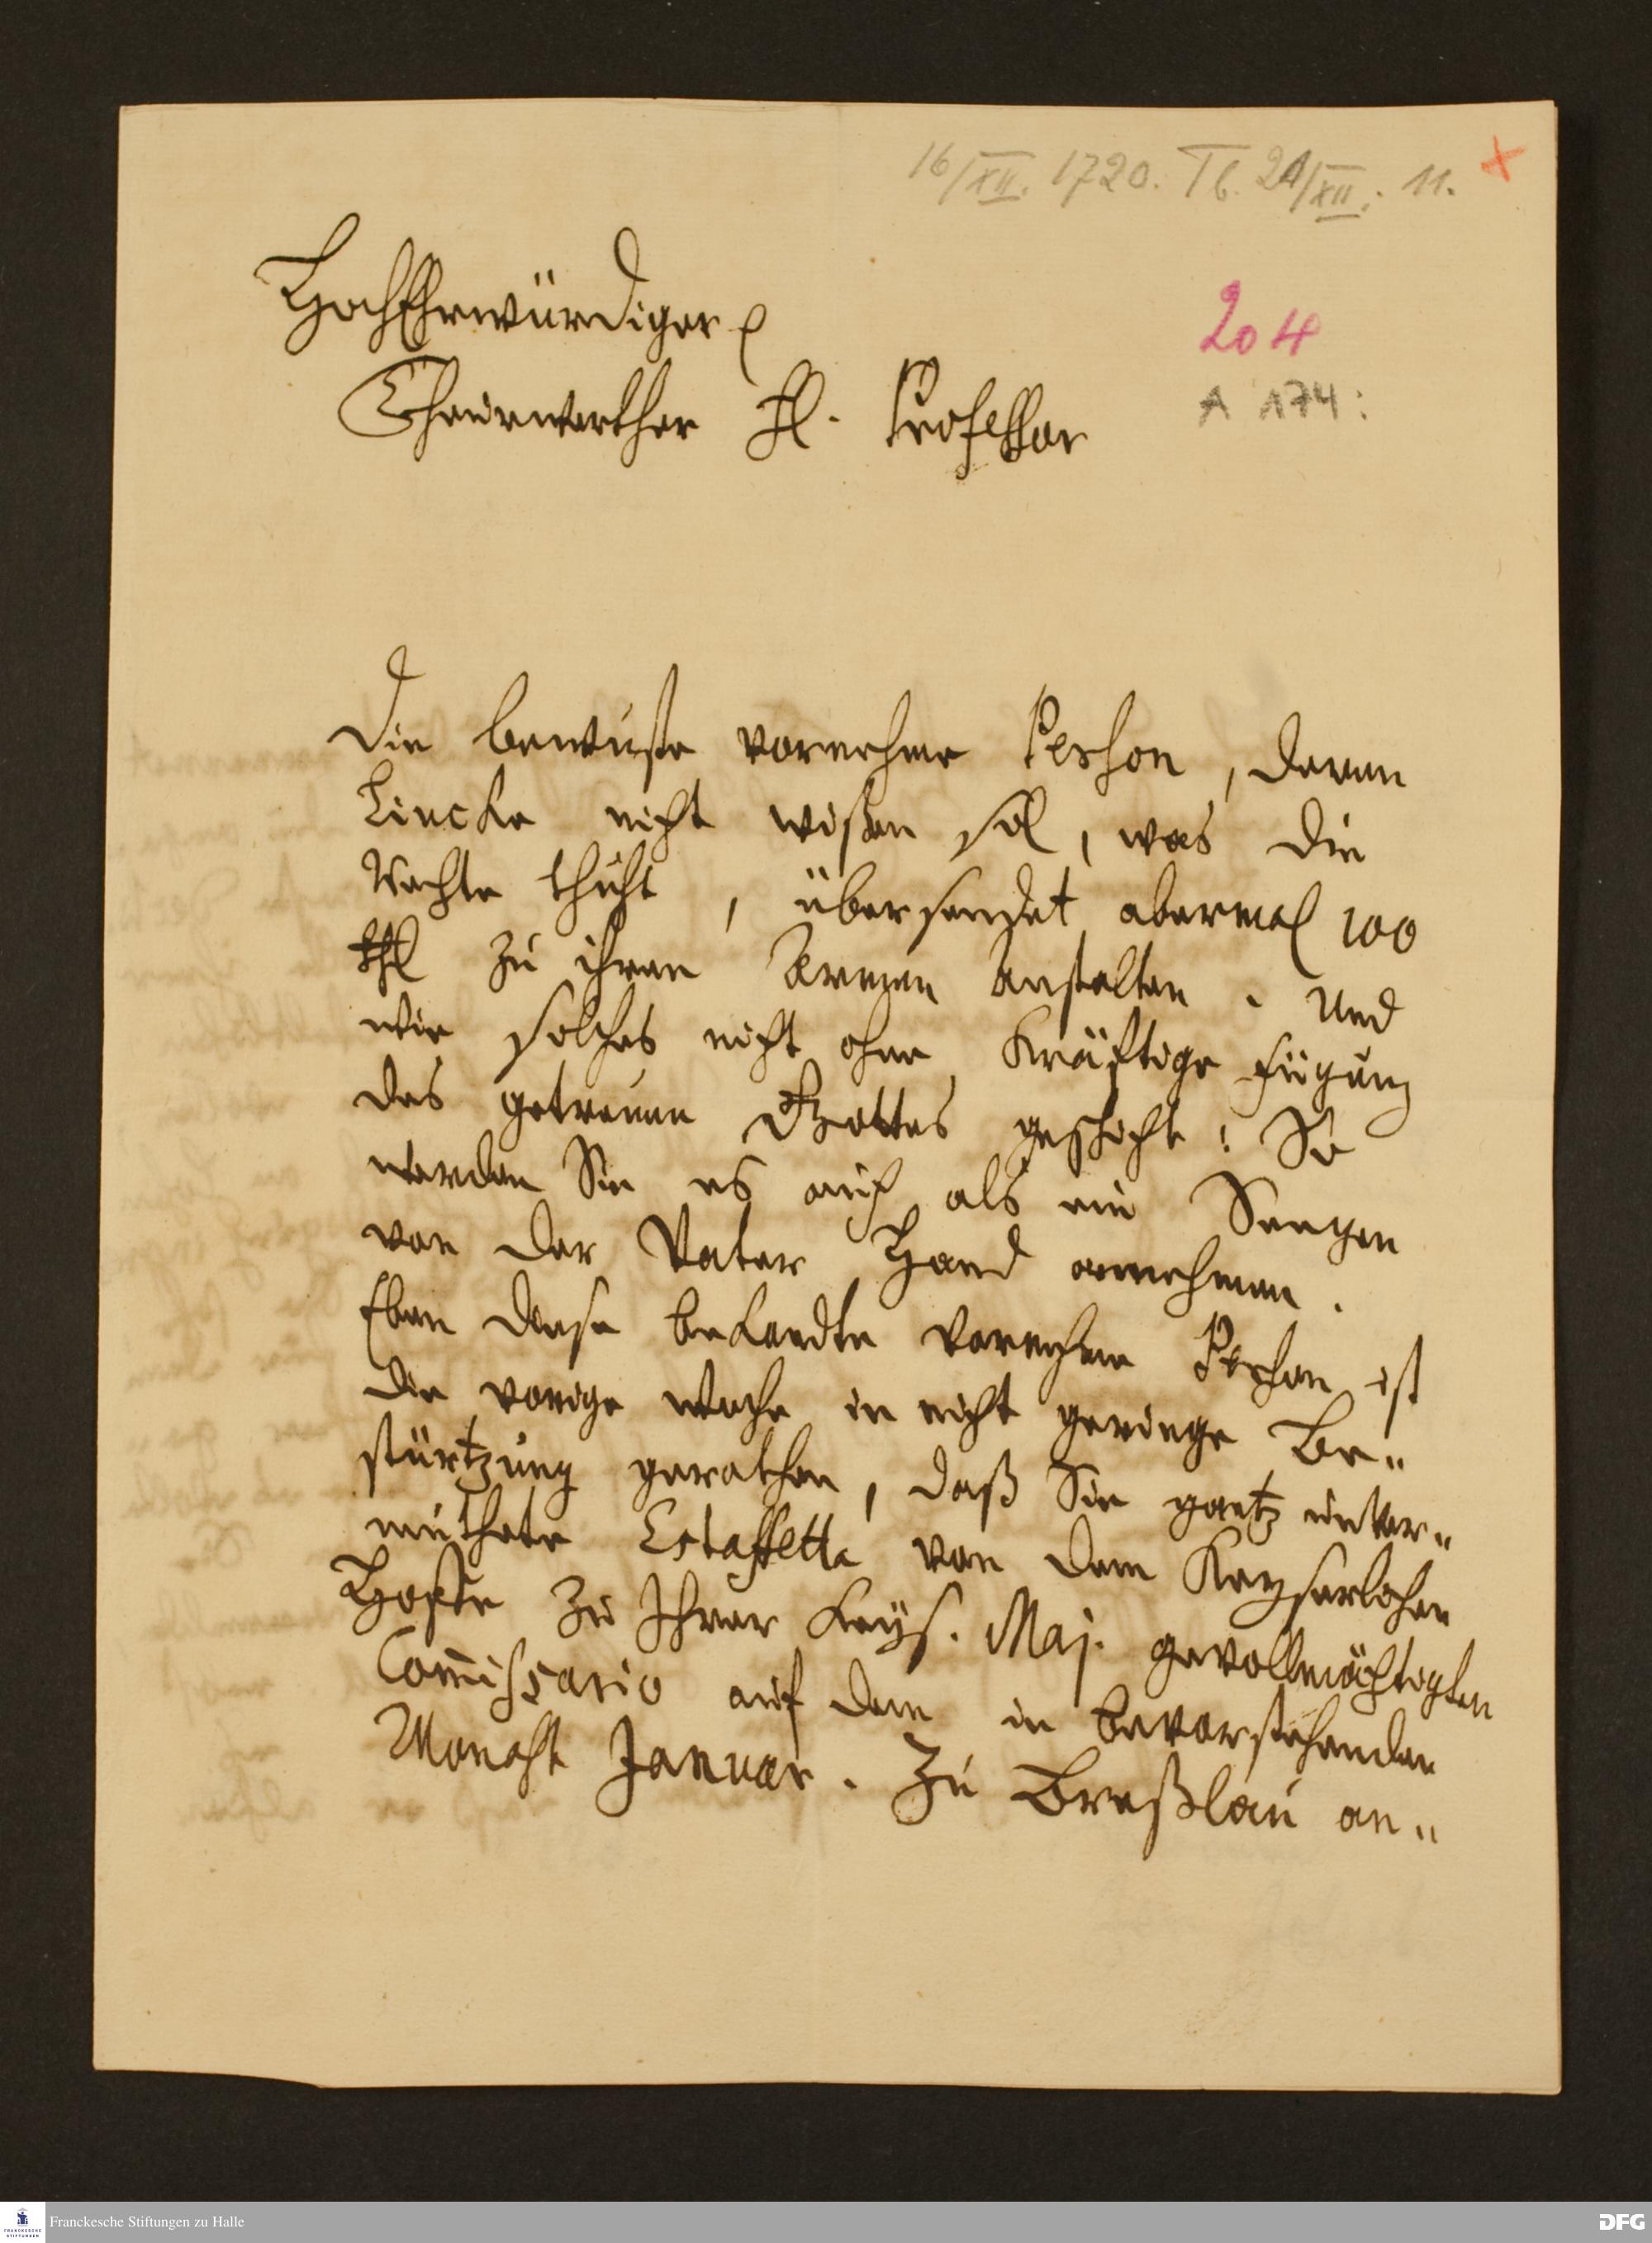 16/XII. 1720. Tb. 21/XII. 11.
HochEhrwürdiger
204
A 174:
Theurwerther H. Professor
Die bewuste vornehme Person, deren
Lincke nicht wißen sol, was die
Rechte thuht, übersendet abermal 100
thl zu ihren Armen Anstalten. Und
wie solches nicht ohne kräftige fügung
des getreuen Gottes geschicht: So
werden Sie es auch als ein Seegen
von der Vater Hand annehmen.
Eben diese bekandte vornehme Person ist
die vorige woche in nicht geringe Be„
stürtzung gerathen, daß Sie gantz unver„
muthete Estaffette von dem Kayserlichen
Hoffe zu Ihrer Kays. Maj. gevollmächtigten
Commissario auf dem in bevorstehenden
Monaht Januar. Zu Breßlau an„
Franckesche Stiftungen zu Halle
DFG